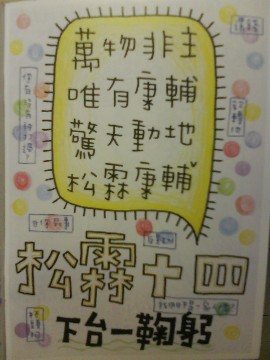 萬物非主
唯有康輔
驚天動地
松霖康輔
松霖十四
下台一鞠躬